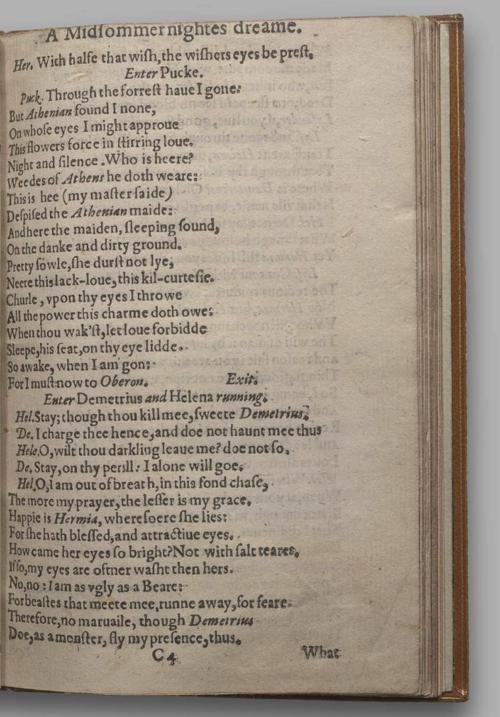 A Midsommer nightes dreame.
Her. With halfe that wish, the wishers eyes be prest.
Enter Pucke.
Puck. Through the forrest haue I gone:
But Athenian found I none,
On whose eyes I might approue
This flowers force in stirring loue.
Night and silence. Who is heere?
Weedes of Athens he doth weare:
This is hee (my master saide)
Despised the Athenian maide:
And here the maiden, sleeping sound,
On the danke and dirty ground.
Pretty sowle, she durst not lye,
Neere this lack-loue, this kil-curtesie.
Churle, vpon thy eyes I throwe
All the power this charme doth owe:
When thou wak'st, let loue forbidde
Sleepe, his seat, on thy eye lidde.
So awake, when I am gon:
For I must now to Oberon. Exit.
Enter Demetrius and Helena running.
Hel. Stay; though thou kill mee, sweete Demetrius.
De. I charge thee hence, and doe not haunt mee thus
Hele. O, wilt thou darkling leaue me? doe not so.
De. Stay, on thy perill: I alone will goe.
Hel. O, I am out of breath, in this fond chase,
The more my prayer, the lesser is my grace.
Happie is Hermia, wheresoere she lies:
For she hath blessed, and attractiue eyes.
How came her eyes so bright? Not with salt teares.
If so, my eyes are oftner washt then hers.
No, no: I am as vgly as a Beare:
For beastes that meete mee, runne away, for feare.
Therefore, no maruaile, though Demetrius
Doe, as a monster, fly my presence, thus.
C4 What